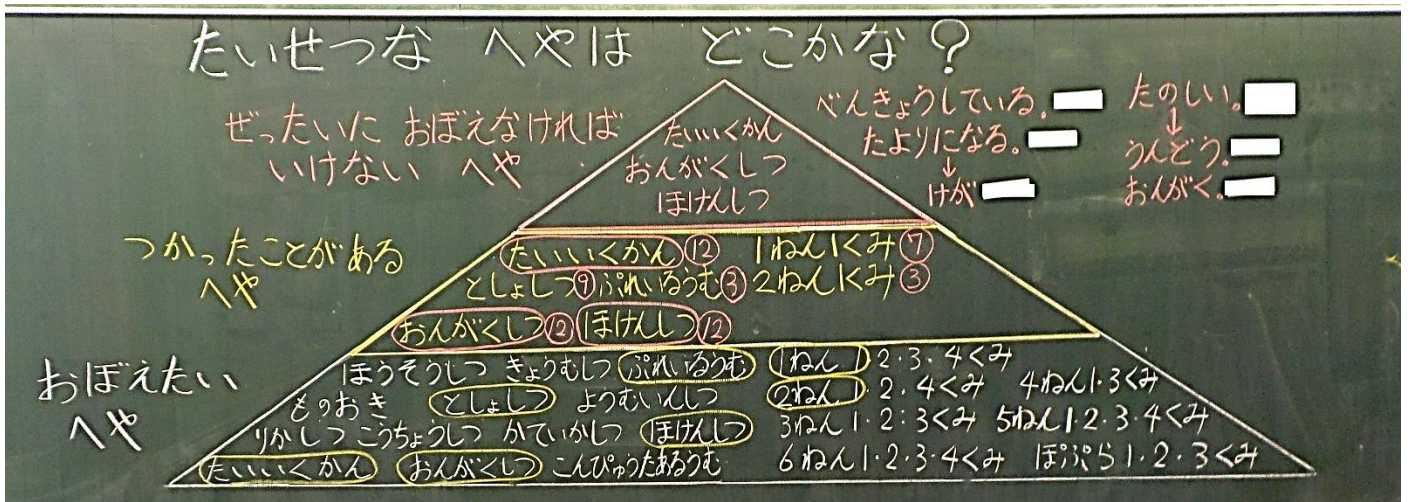 たいせつな へやは どこかな?
ぜったいに おぼえなければ
いけない へや
たいいくかん
おんがくしつ
ほけんしつ
べんきょうしている。
たよりになる。
↓
けが
たのしい。
↓
うんどう。
おんがく。
つかったことがある
へや
たいいくかん⑫ 1ねん1くみ⑦
としょしつ⑨ ぷれいるうむ③ 2ねん1くみ③
おんがくしつ⑫ ほけんしつ⑫
おぼえたい
へや
ほうそうしつ きょうむしつ ぷれいるうむ 1ねん1 2・3・4くみ
ものおき としょしつ ようむいんしつ 2ねん1 2・4くみ 4ねん1・3くみ
りかしつ こうちょうしつ かていかしつ ほけんしつ 3ねん1・2・3くみ 5ねん1・2・3・4くみ
たいいくかん おんがくしつ こんぴゅうたあるうむ 6ねん1・2・3・4くみ ぽぷら1・2・3くみ